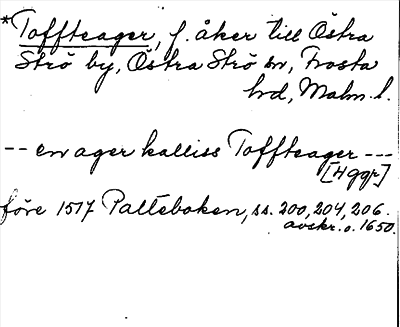 *Toffteager, f. åker till Östra
Strö by, Östra Strö sn, Frosta
hd, Malm. l.
-- en ager kalliss Toffteager ---
[Hggr]
före 1517 Palteboken, ss. 200, 204, 206.
avskr. o. 1650.